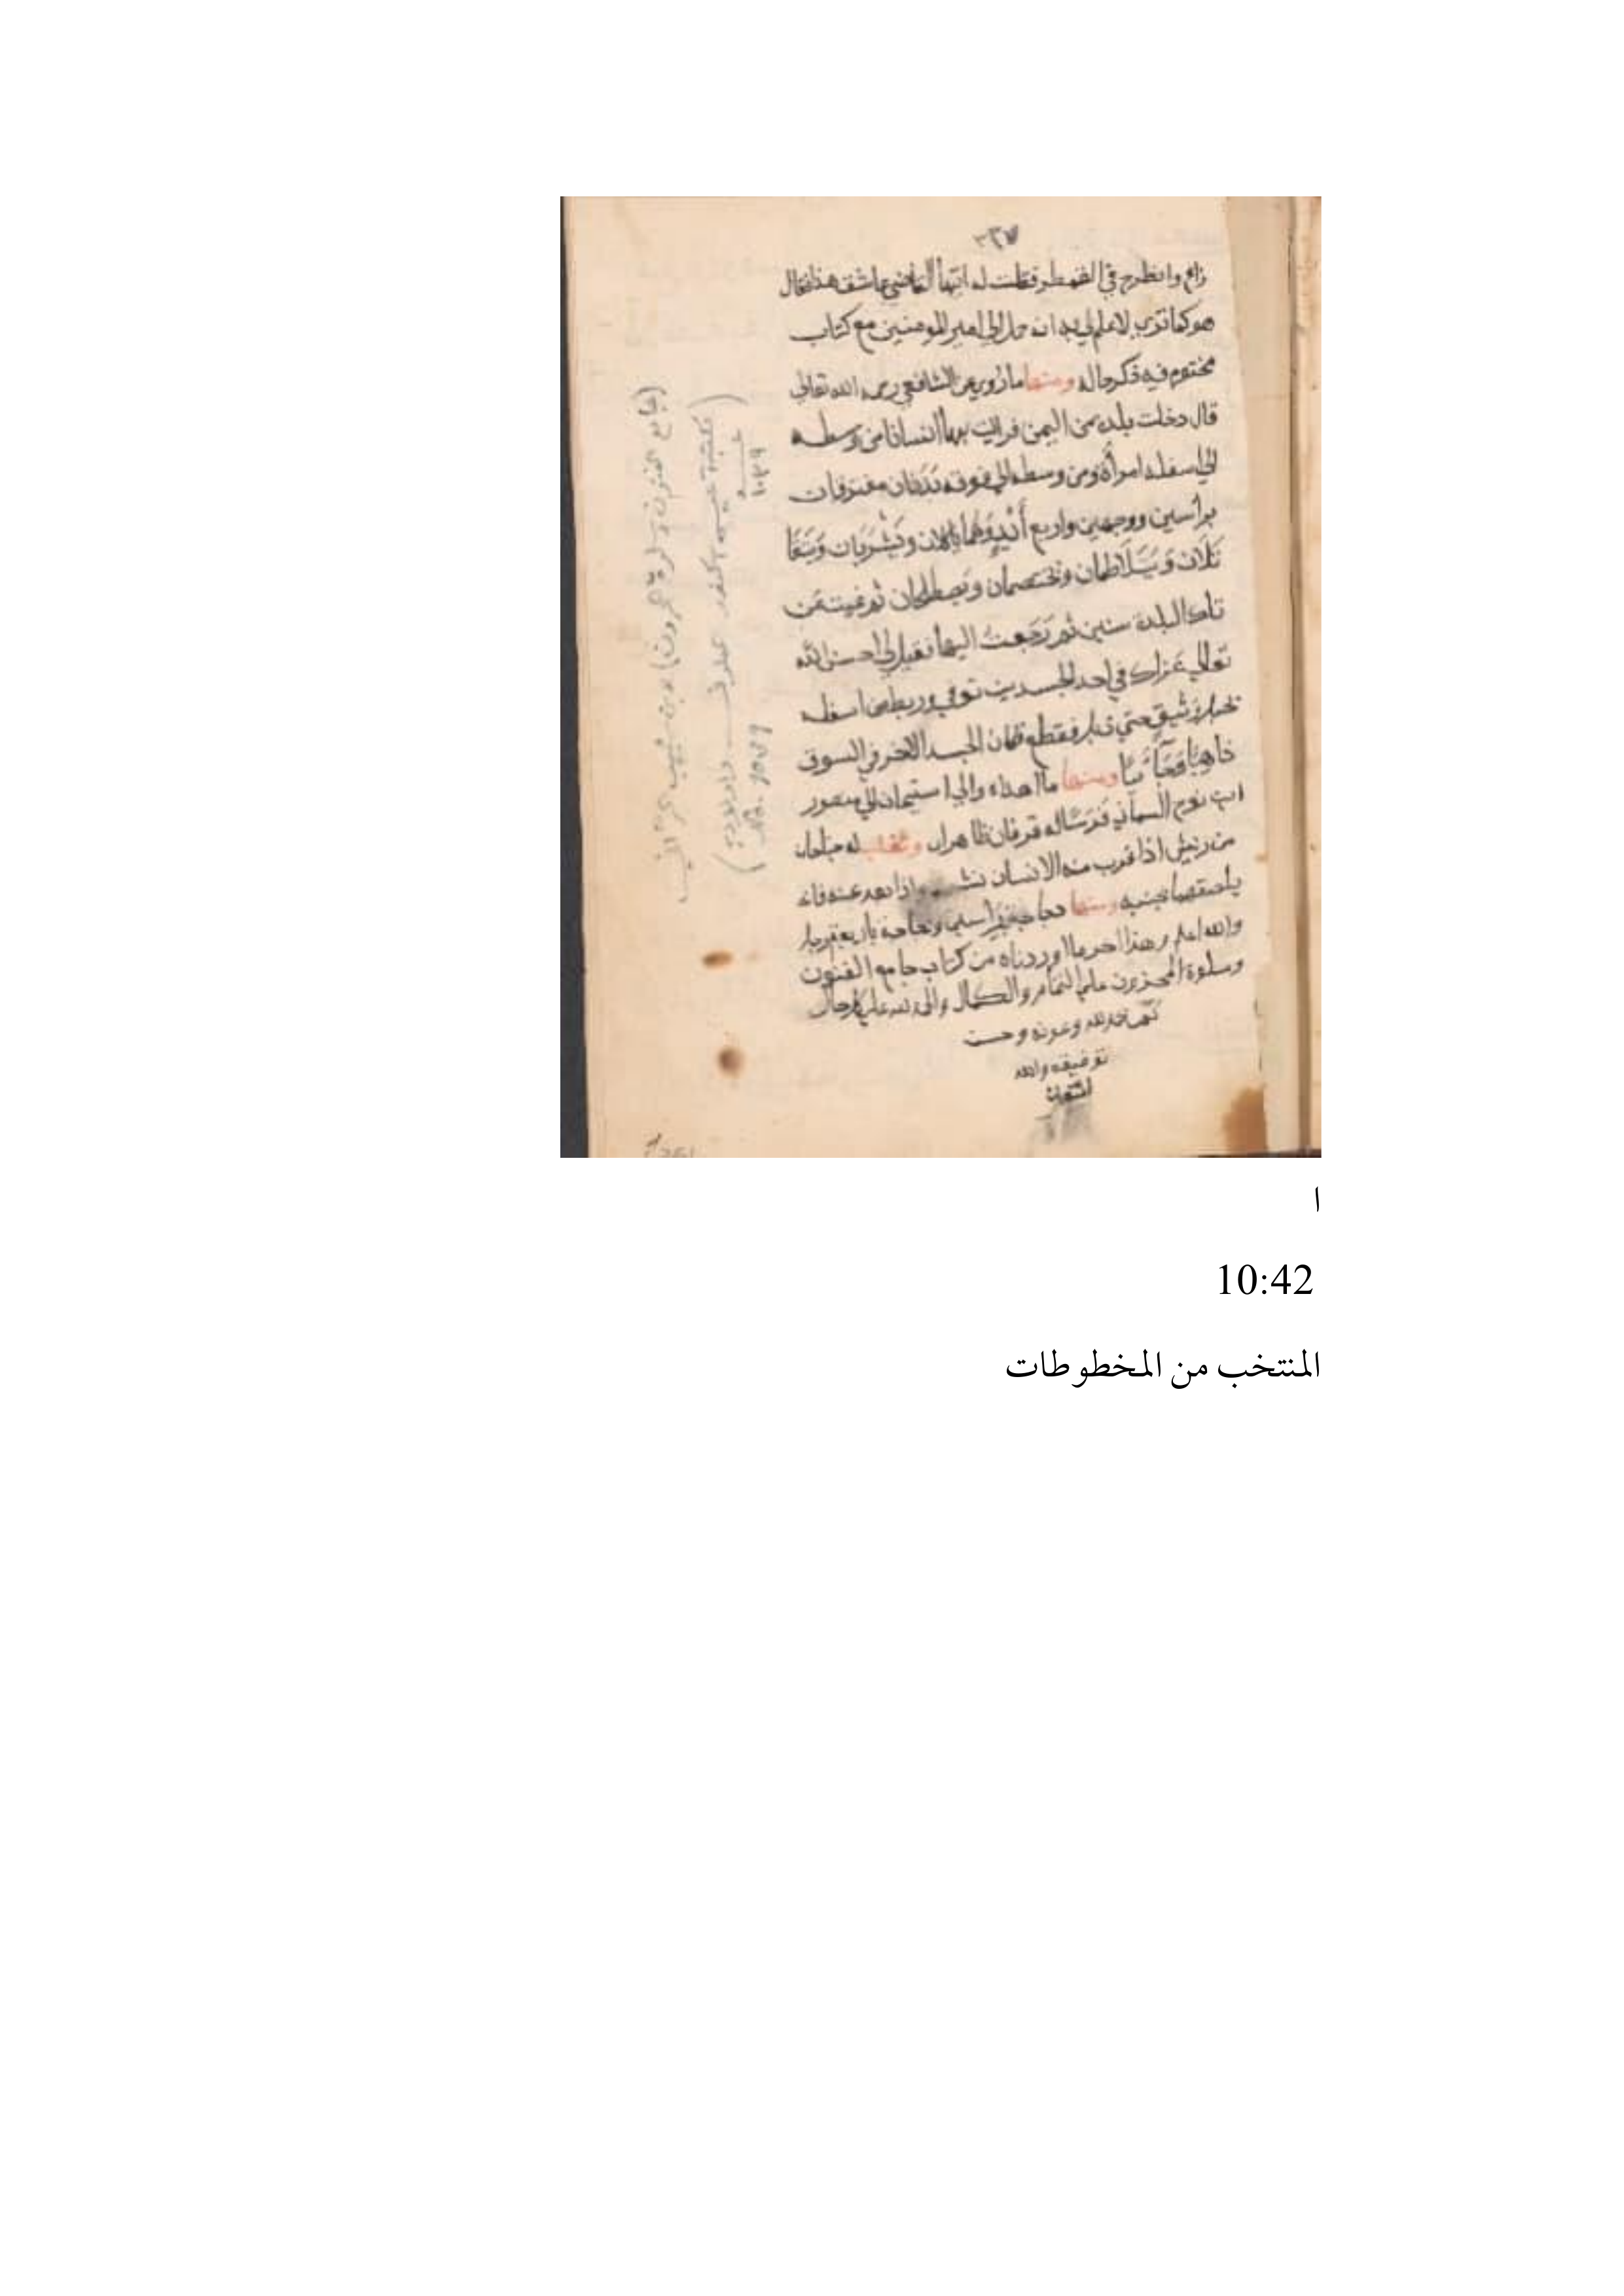 ٣٢٧
زاغ وانطرح في القمطر فقلت له ايها القاضي عاشق هذا فقال
هو كما تري لا علم لي به انه حمل الي امير المومنين مع كتاب
مختوم فيه ذكر حاله ومنها ما روي عن الشافعي رحمه الله تعالي
قال دخلت بلده من اليمن فرايت بها انسانا من وسطه
الي اسفله امرأة ومن وسطه الي فوقه بدنان مفترقان
براسين ووجهين واربع أيد وهما ياكلان ويشربان ويتقا
تلان ويتلاطمان ويختصمان ويصطلحان ثم غبت عن
تلك البلدة سنين ثم رجعت اليها فقيل لي احسن الله
تعالي عزاك في احد الجسدين توفي وربط من اسفله
بحبل وثيق حتي ذبل فقطع فكان الجسد الاخر في السوق
ذاهبا وجائيا ومنها ما اهداه والي استيمان الي منصور
ابن نوح الساماني فرسا له قرنان ظاهران وثعلب له جناحان
من ريش اذا قرب منه الانسان نشـ واذا بعد عنه فانه
يلصقهما بجنبيه ومنها دجاجة براسين ودجاجة باربعة ارجل
والله اعلم وهذا اخر ما اوردناه من كتاب جامع الفنون
وسلوة المحزون علي التمام والكمال والحمد لله علي كل حال
تم بحمد الله وعونه وحسن
توفيقه والله
ا
10:42
المنتخب من المخطوطات